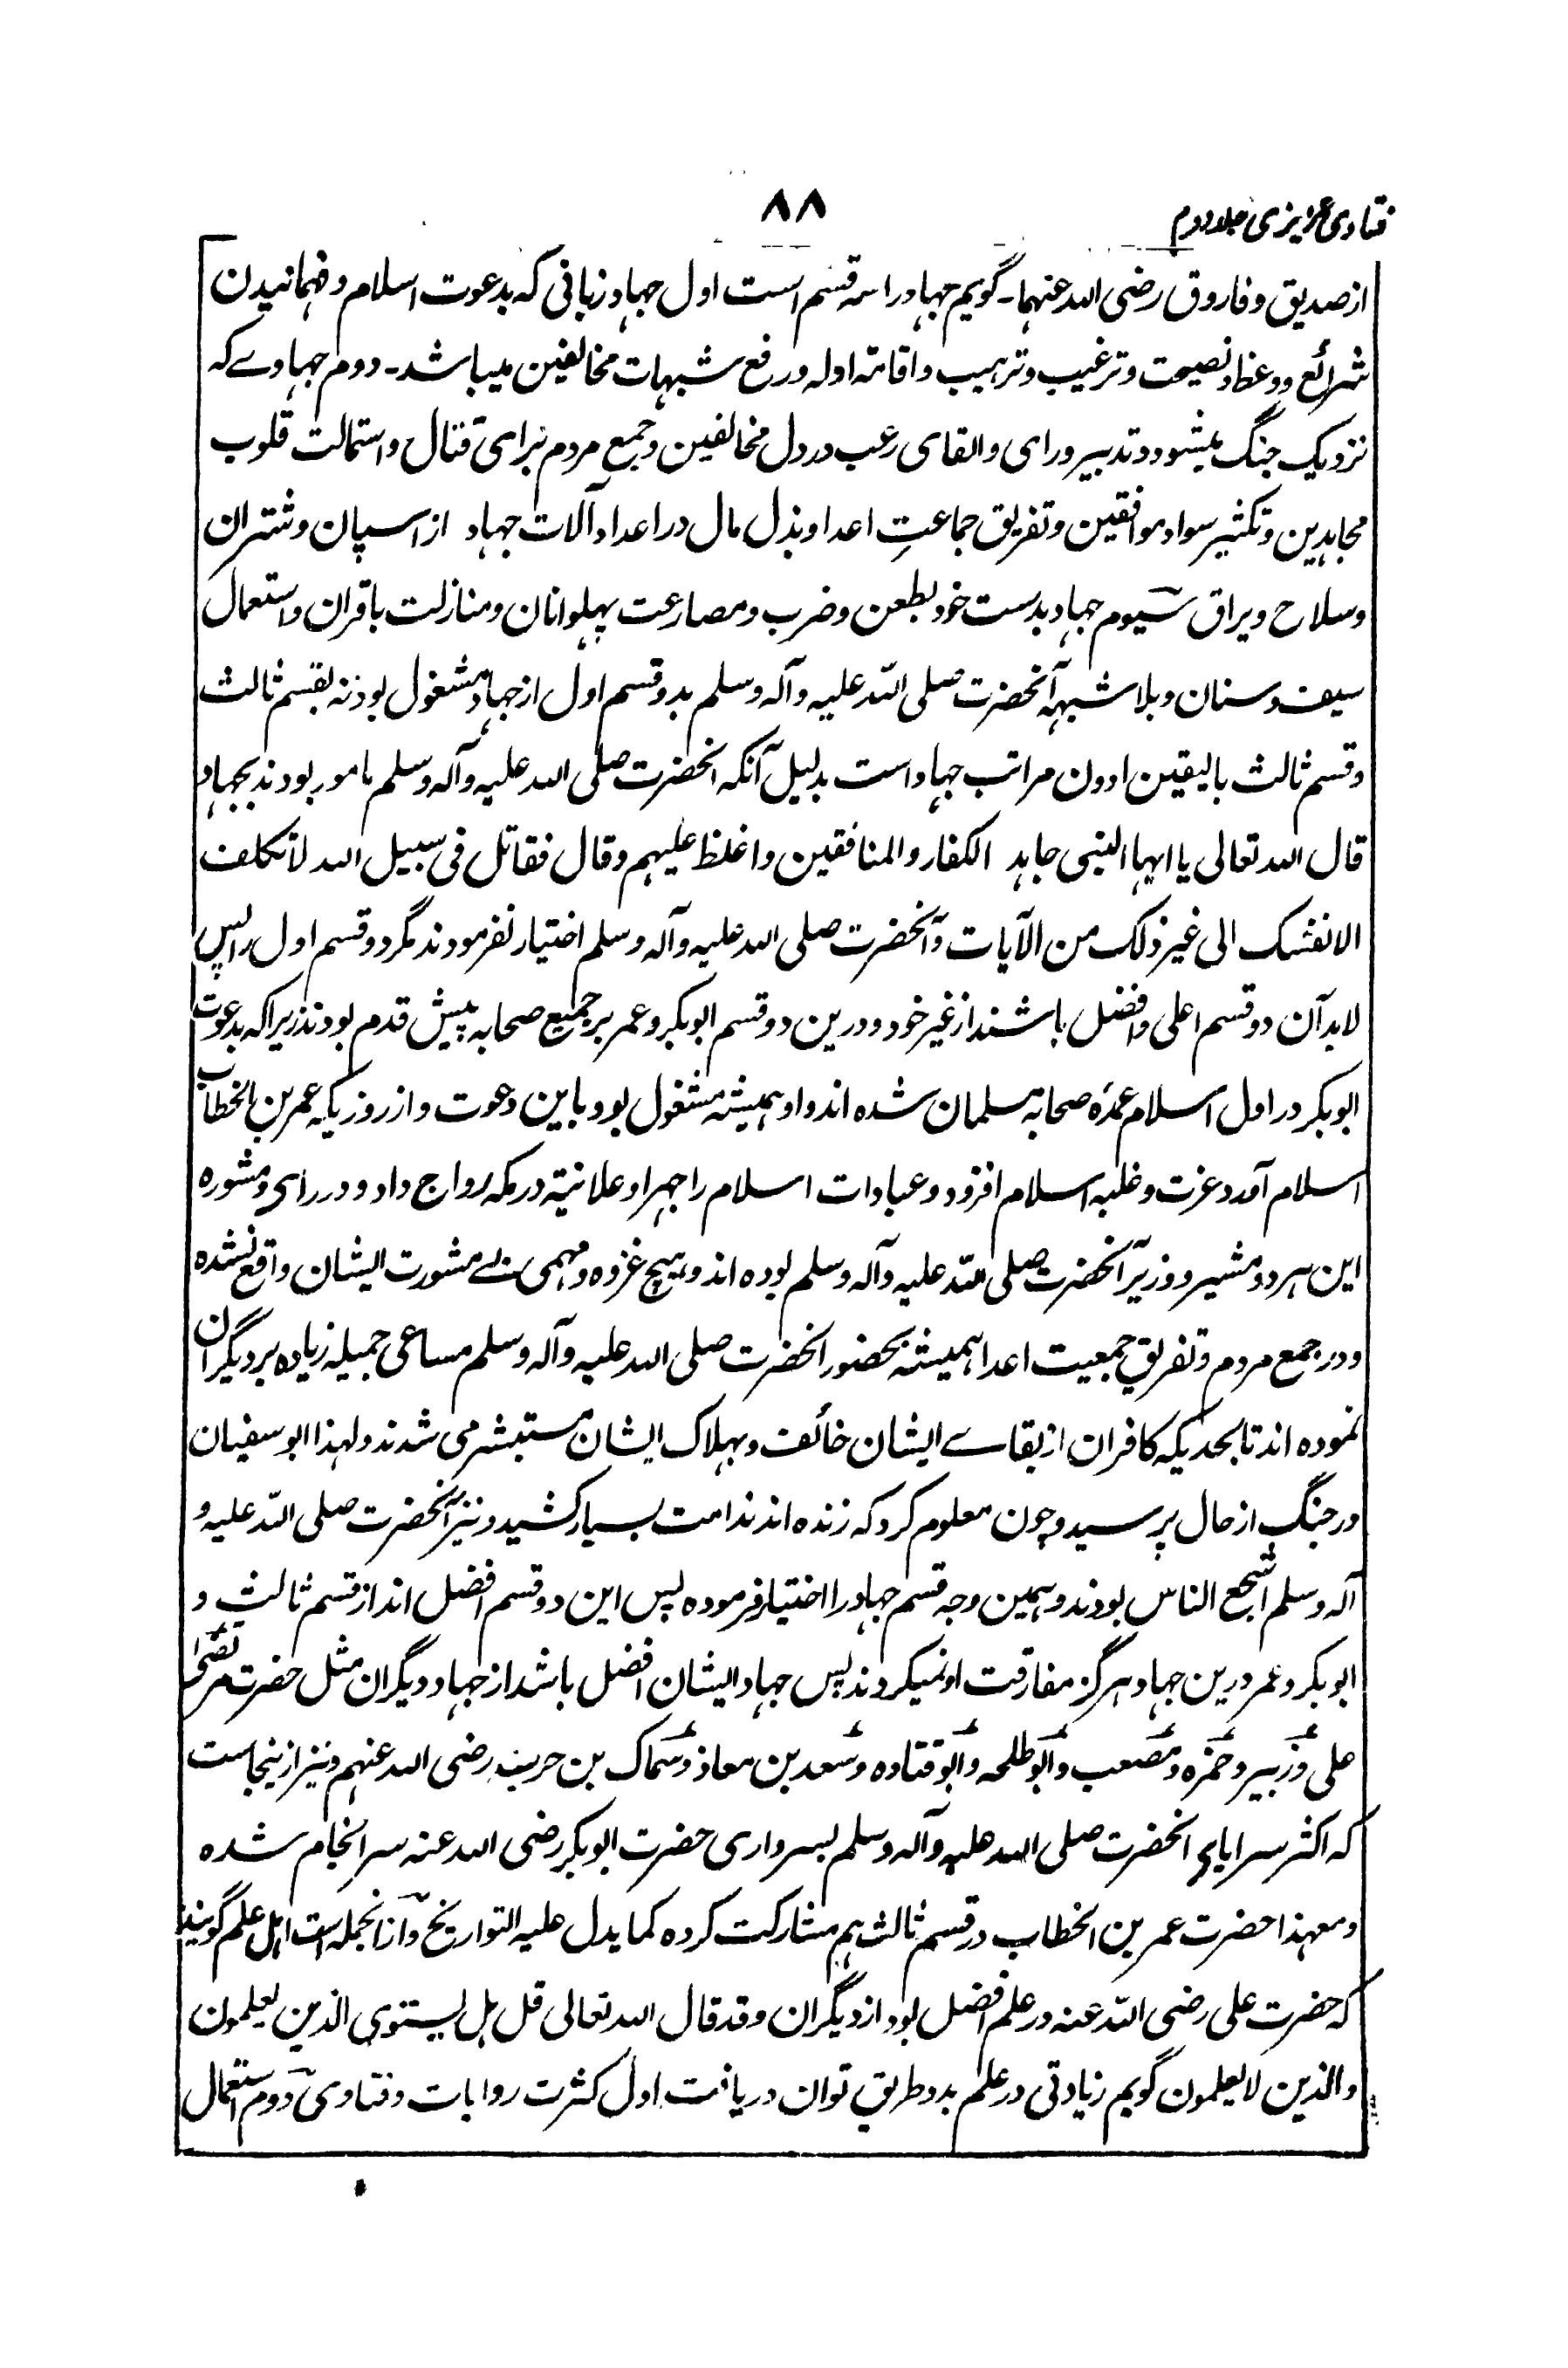 فتاوی عزیزی جلد دوم
۸۸
از صدیق و فاروق رضی الله عنهما۔ گویم جهاد را سه قسم است اول جهاد زبانی که بدعوت اسلام و فهمانیدن
شرائع و وعظ و نصیحت و ترغیب و ترهیب و اقامة ادله و رفع شبهات مخالفین میباشد۔ دوم جهادے که
نزدیک جنگ میشود و تدبیر و رای و القای رعب در دل مخالفین و جمع مردم برای قتال و استمالت قلوب
مجاهدین و تکثیر سواد موافقین و تفریق جماعتِ اعدا و بذل مال در اعداد آلات جهاد از اسپان و شتران
و سلاح و یراق سیوم جهاد بدست خود بطعن و ضرب و مصارعت پهلوانان و منازلت باقران و استعمال
سیف و سنان و بلا شبهه آنحضرت صلی الله علیه و آله وسلم بدو قسم اول از جهاد مشغول بود نه بقسم ثالث
و قسم ثالث بالیقین ادون مراتب جهاد است بدلیل آنکه آنحضرت صلی الله علیه و آله وسلم مامور بودند بجهاد
قال الله تعالی یا ایها النبی جاهد الکفار والمنافقین واغلظ علیهم وقال فقاتل فی سبیل الله لا تکلف
الا نفسک الی غیر ذلک من الآیات و آنحضرت صلی الله علیه و آله وسلم اختیار نفرمودند مگر دو قسم اول را پس
لابد آن دو قسم اعلی و افضل باشند از غیر خود و درین دو قسم ابوبکر و عمر بر جمیع صحابه پیش قدم بودند زیرا که بدعوت
ابوبکر در اول اسلام عمدۀ صحابه مسلمان شده اند و او همیشه مشغول بود باین دعوت و از روزیکه عمر بن الخطاب
اسلام آورد عزت و غلبه اسلام افزود و عبادات اسلام را جهرا و علانیة در مکه رواج داد و در رای و مشوره
این هر دو مشیر و وزیر آنحضرت صلی الله علیه و آله وسلم بوده اند و هیچ غزوه و مهمی بے مشورت ایشان واقع نشده
و در جمع مردم و تفریق جمعیت اعدا همیشه بحضور آنحضرت صلی الله علیه و آله وسلم مساعی جمیله زیاده بر دیگران
نموده اند تا بحدیکه کافران از بقاے ایشان خائف و بهلاک ایشان مستبشر می شدند و لهذا ابو سفیان
در جنگ از حال پرسید و چون معلوم کرد که زنده اند ندامت بسیار کشید و نیز آنحضرت صلی الله علیه و
آله وسلم اشجع الناس بودند و همین وجه قسم جهاد را اختیار فرموده پس این دو قسم افضل اند از قسم ثالث و
ابوبکر و عمر درین جهاد هرگز مفارقت او نمیکردند پس جهاد ایشان افضل باشد از جهاد دیگران مثل حضرت مرتضی
علی و زبیر و حمزه و مصعب و ابو طلحه و ابو قتاده و سعد بن معاذ و سماک بن حرب رضی الله عنهم و نیز ازینجاست
که اکثر سرایای آنحضرت صلی الله علیه و آله وسلم بسرداری حضرت ابوبکر رضی الله عنه سرانجام شده
و معهذا حضرت عمر بن الخطاب در قسم ثالث هم مشارکت کرده کما یدل علیه التواریخ و ازانجمله است اهل علم گویند
که حضرت علی رضی الله عنه در علم افضل بود از دیگران و قد قال الله تعالی قل هل یستوی الذین یعلمون
والذین لا یعلمون گویم زیادتی در علم بدو طریق توان دریافت اول کثرت روایات و فتاوی دوم استعمال